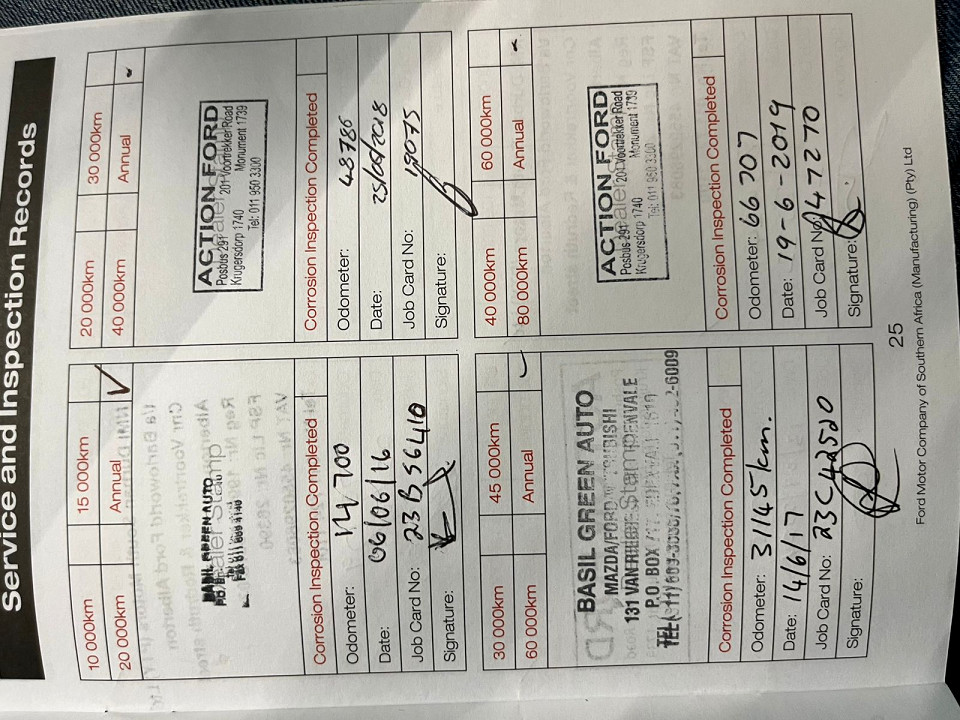 Service and Inspection Records
10 000km 15 000km
20 000km Annual ✓
BASIL GREEN AUTO
Dealer Stamp
Corrosion Inspection Completed
Odometer: 14 700
Date: 06/06/16
Job Card No: 23B56410
Signature:
20 000km 30 000km
40 000km Annual ✓
ACTION FORD
Posbus 291 201 Voortrekker Road
Krugersdorp 1740 Monument 1739
Tel: 011 950 3300
Corrosion Inspection Completed
Odometer: 48786
Date:
Job Card No: 19075
Signature:
30 000km 45 000km
60 000km Annual ✓
BASIL GREEN AUTO
MAZDA/FORD/MITSUBISHI
131 VAN RIEBEECK
Dealer Stamp
P.O. BOX
Corrosion Inspection Completed
Odometer: 31145 km.
Date: 14/6/17
Job Card No: 23C42520
Signature:
40 000km 60 000km
80 000km Annual ✓
ACTION FORD
Posbus 291 201 Voortrekker Road
Krugersdorp 1740 Monument 1739
Tel: 011 950 3300
Dealer Stamp
Corrosion Inspection Completed
Odometer: 66 307
Date: 19-6-2019
Job Card No: 247270
Signature:
25
Ford Motor Company of Southern Africa (Manufacturing) (Pty) Ltd